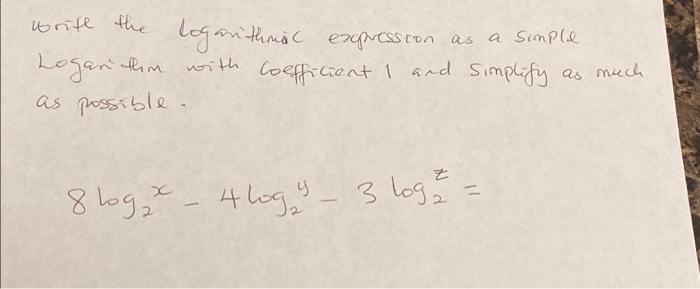 write the logarithmic expression as a simple
Logarithm with coefficient 1 and simplify as much
as possible.
8 log₂ˣ - 4 log₂ʸ - 3 log₂ᶻ =